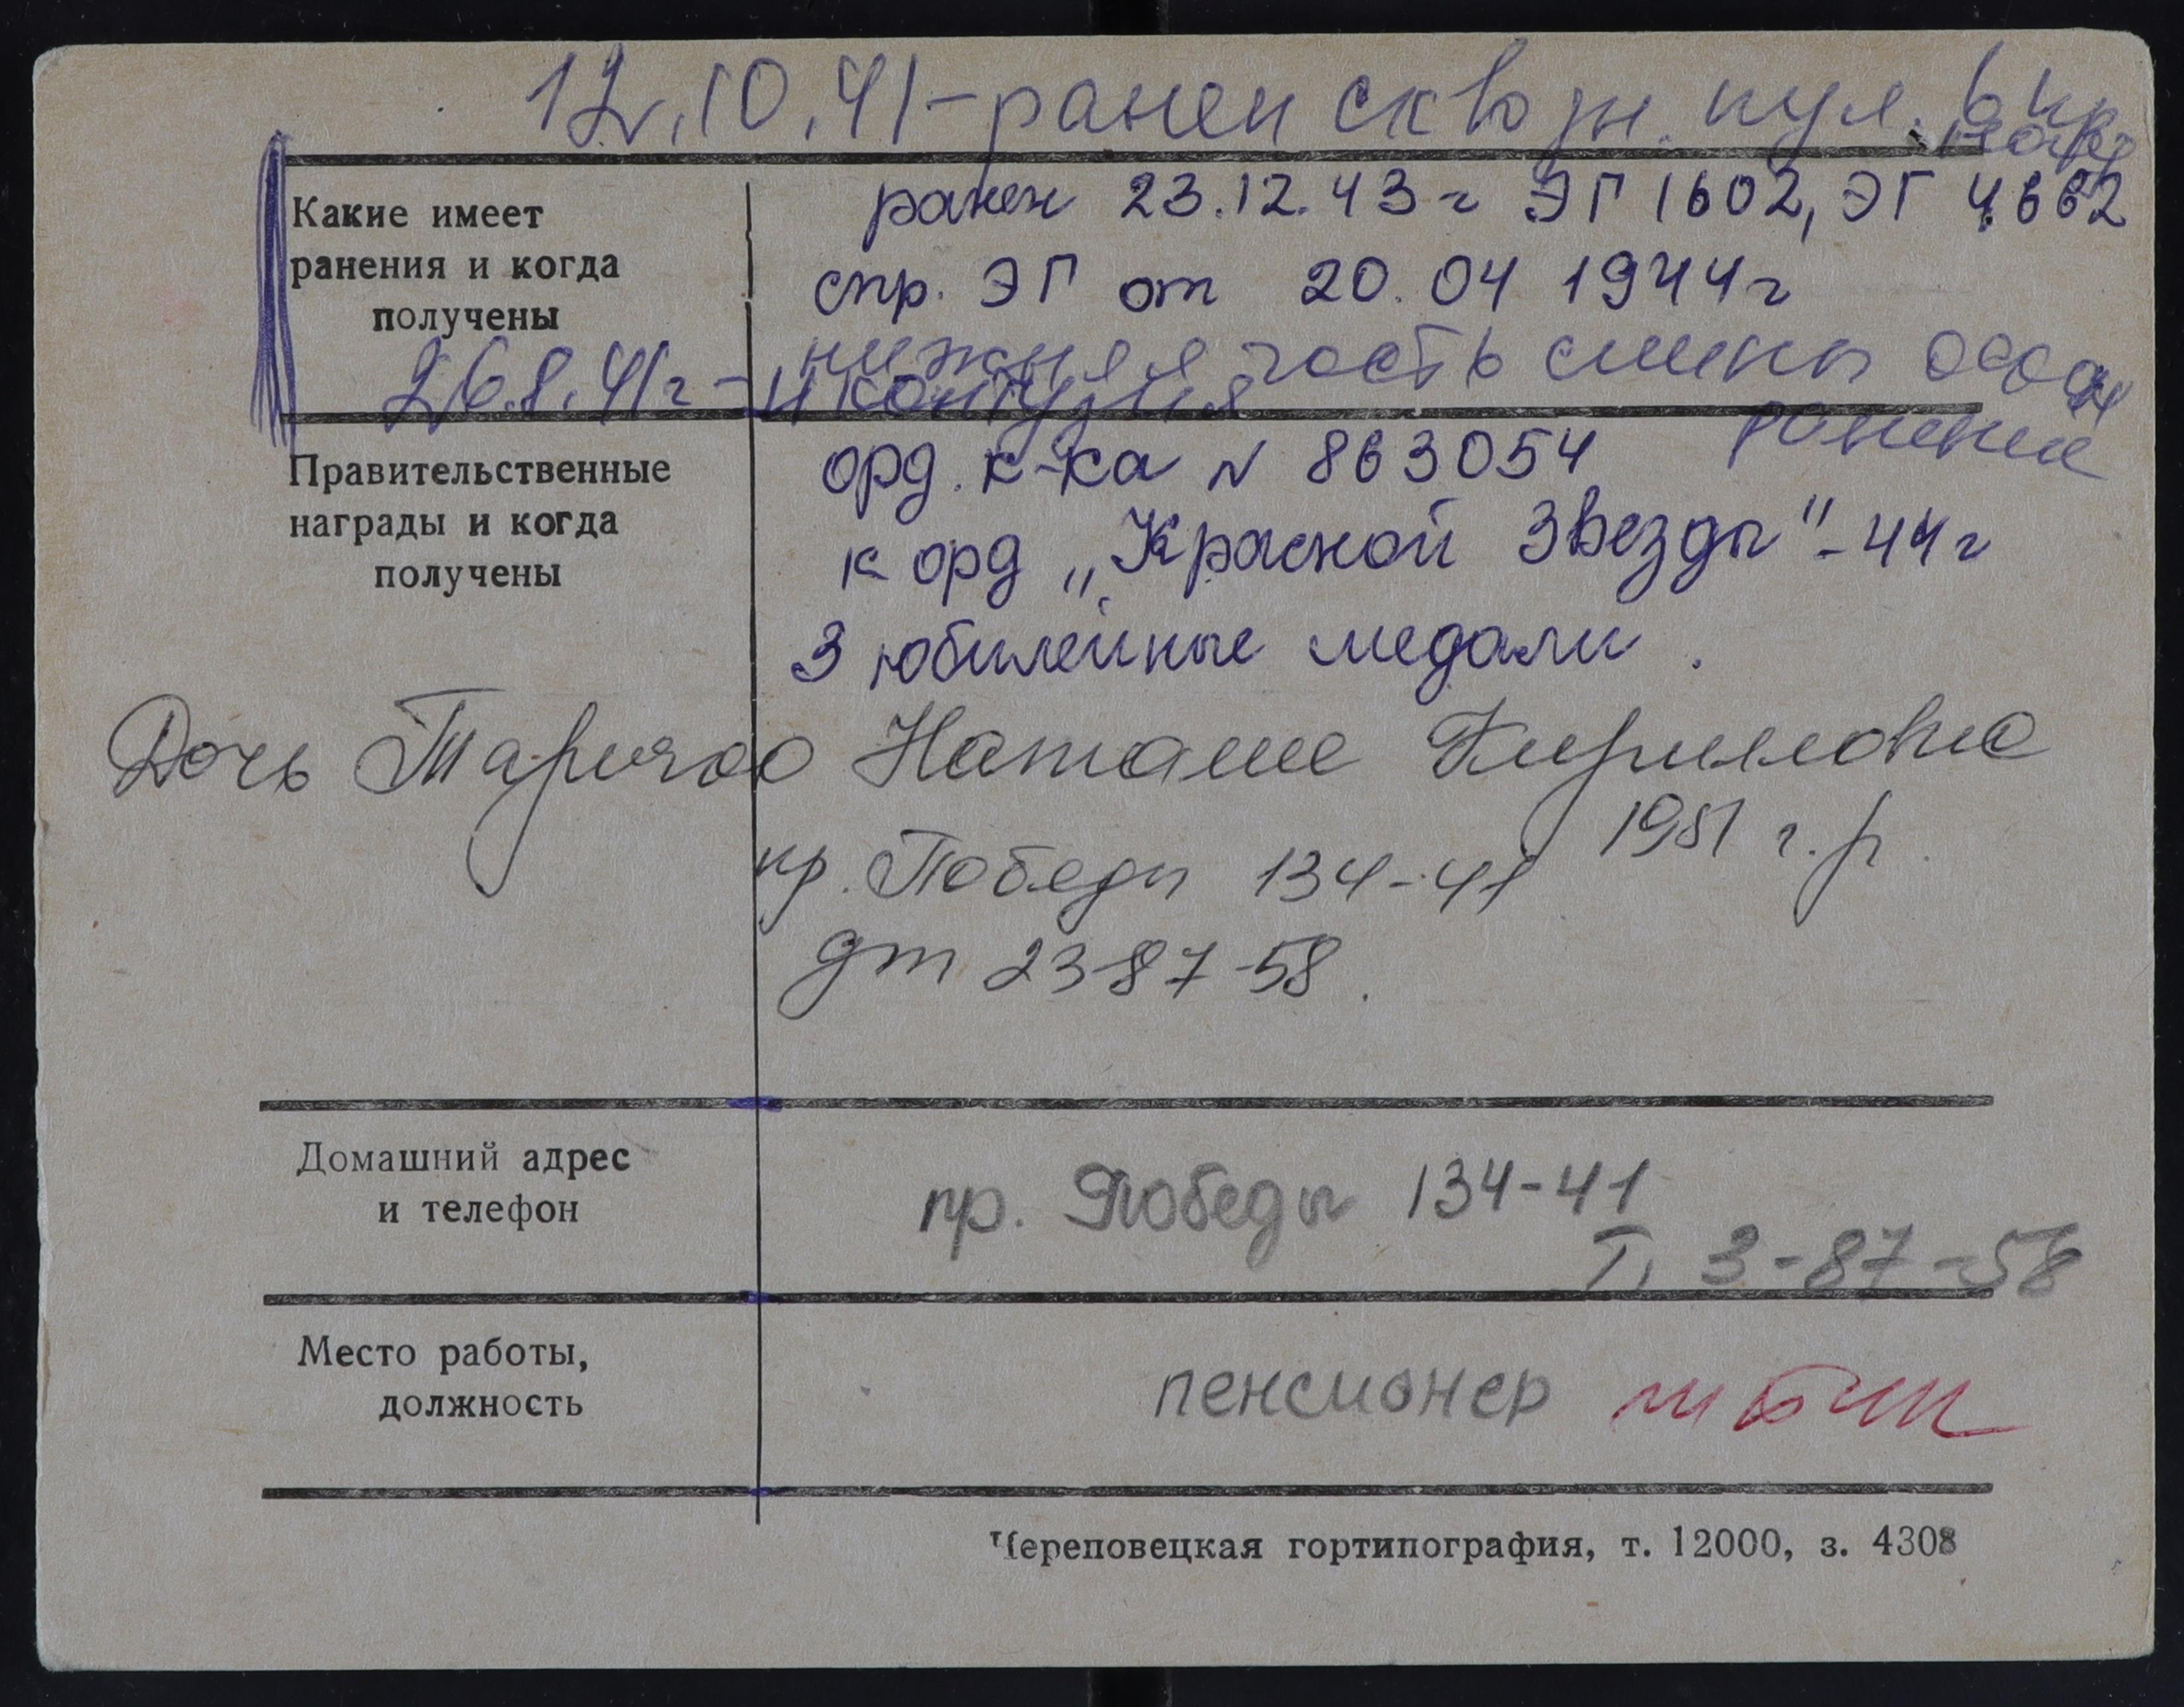 12.10.41 - ранен сквозн. пул. в пр.
Какие имеет
ранения и когда
получены
ранен 23.12.43 г ЭГ 1602, ЭГ 4662
спр. ЭГ от 20.04 1944 г
26.8.41 г - нижняя часть спины оскол
и контузия ранение
Правительственные
награды и когда
получены
орд. к-ка N 863054
к орд „Красной Звезды" - 44 г
3 юбилейные медали.
Дочь Наташе Кирилловне
1951 г.р.
пр. Победы 134-41
дт 23-87-58.
Домашний адрес
и телефон
пр. Победы 134-41
Т. 3-87-58
Место работы,
должность
пенсионер
Череповецкая гортипография, т. 12000, з. 4308